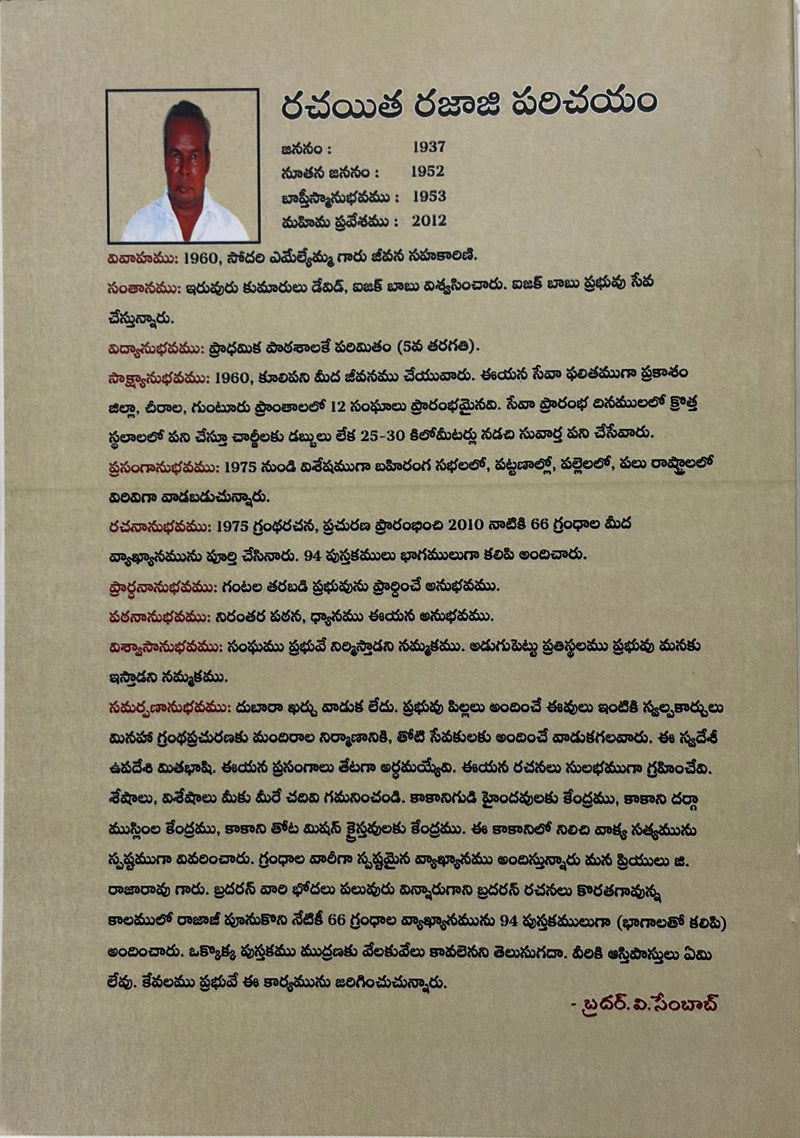 రచయిత రజాజి పరిచయం
జననం : 1937
నూతన జననం : 1952
బాప్తీస్మానుభవము : 1953
మహిమ ప్రవేశము : 2012
వివాహము: 1960, సోదరి ఎమేల్యేమ్మ గారు జీవన సహకారిణి.
సంతానము: ఇరువురు కుమారులు డేవిడ్, ఐజక్ బాబు విశ్వసించారు. ఐజక్ బాబు ప్రభువు సేవ
చేస్తున్నారు.
విద్యానుభవము: ప్రాధమిక పాఠశాలకే పరిమితం (5వ తరగతి).
సాక్ష్యానుభవము: 1960, కూలిపని మీద జీవనము చేయువారు. ఈయన సేవా ఫలితముగా ప్రకాశం
జిల్లా, చీరాల, గుంటూరు ప్రాంతాలలో 12 సంఘాలు ప్రారంభమైనవి. సేవా ప్రారంభ దినములలో క్రొత్త
స్థలాలలో పని చేస్తూ చార్జీలకు డబ్బులు లేక 25-30 కిలోమీటర్లు నడచి సువార్త పని చేసేవారు.
ప్రసంగానుభవము: 1975 నుండి విశేషముగా బహిరంగ సభలలో, పట్టణాల్లో, పల్లెలలో, పలు రాష్ట్రాలలో
విరివిగా వాడబడుచున్నారు.
రచనానుభవము: 1975 గ్రంథరచన, ప్రచురణ ప్రారంభించి 2010 నాటికి 66 గ్రంధాల మీద
వ్యాఖ్యానమును పూర్తి చేసినారు. 94 పుస్తకములు భాగములుగా కలిపి అందిచారు.
ప్రార్ధనానుభవము: గంటల తరబడి ప్రభువును ప్రార్ధించే అనుభవము.
పఠనానుభవము: నిరంతర పఠన, ధ్యానము ఈయన అనుభవము.
విశ్వాసానుభవము: సంఘము ప్రభువే నిర్మిస్తాడని నమ్మకము. అడుగుపెట్టు ప్రతిస్థలము ప్రభువు మనకు
ఇస్తాడని నమ్మకము.
సమర్పణానుభవము: దుబారా ఖర్చు వాడుక లేదు. ప్రభువు పిల్లలు అందించే ఈవులు ఇంటికి స్వల్పకార్చులు
మినహా గ్రంథప్రచురణకు మందిరాల నిర్మాణానికి, తోటి సేవకులకు అందించే వాడుకగలవారు. ఈ స్వదేశీ
ఉపదేశి మితభాషి. ఈయన ప్రసంగాలు తేటగా అర్ధమయ్యేవి. ఈయన రచనలు సులభముగా గ్రహించేవి.
శేషాలు, విశేషాలు మీకు మీరే చదివి గమనించండి. కాకానిగుడి హైందవులకు కేంద్రము, కాకాని దర్గా
ముస్లింల కేంద్రము, కాకాని తోట మిషన్ క్రైస్తవులకు కేంద్రము. ఈ కాకానిలో నిలిచి వాక్య సత్యమును
స్పష్టముగా వివరించారు. గ్రంధాల వారీగా స్పష్టమైన వ్యాఖ్యానము అందిస్తున్నారు మన ప్రియులు జి.
రాజారావు గారు. బ్రదరన్ వారి భోదలు పలువురు విన్నారుగాని బ్రదరన్ రచనలు కొరతగావున్న
కాలములో రాజాజీ పూనుకొని నేటికీ 66 గ్రంధాల వ్యాఖ్యానమును 94 పుస్తకములుగా (భాగాలతో కలిపి)
అందించారు. ఒక్కొక్క పుస్తకము ముద్రణకు వేలకువేలు కావలెనని తెలుసుగదా. వీరికి ఆస్తిపాస్తులు ఏమి
లేవు. కేవలము ప్రభువే ఈ కార్యమును జరిగించుచున్నారు.
- బ్రదర్. వి.సేంబాబ్